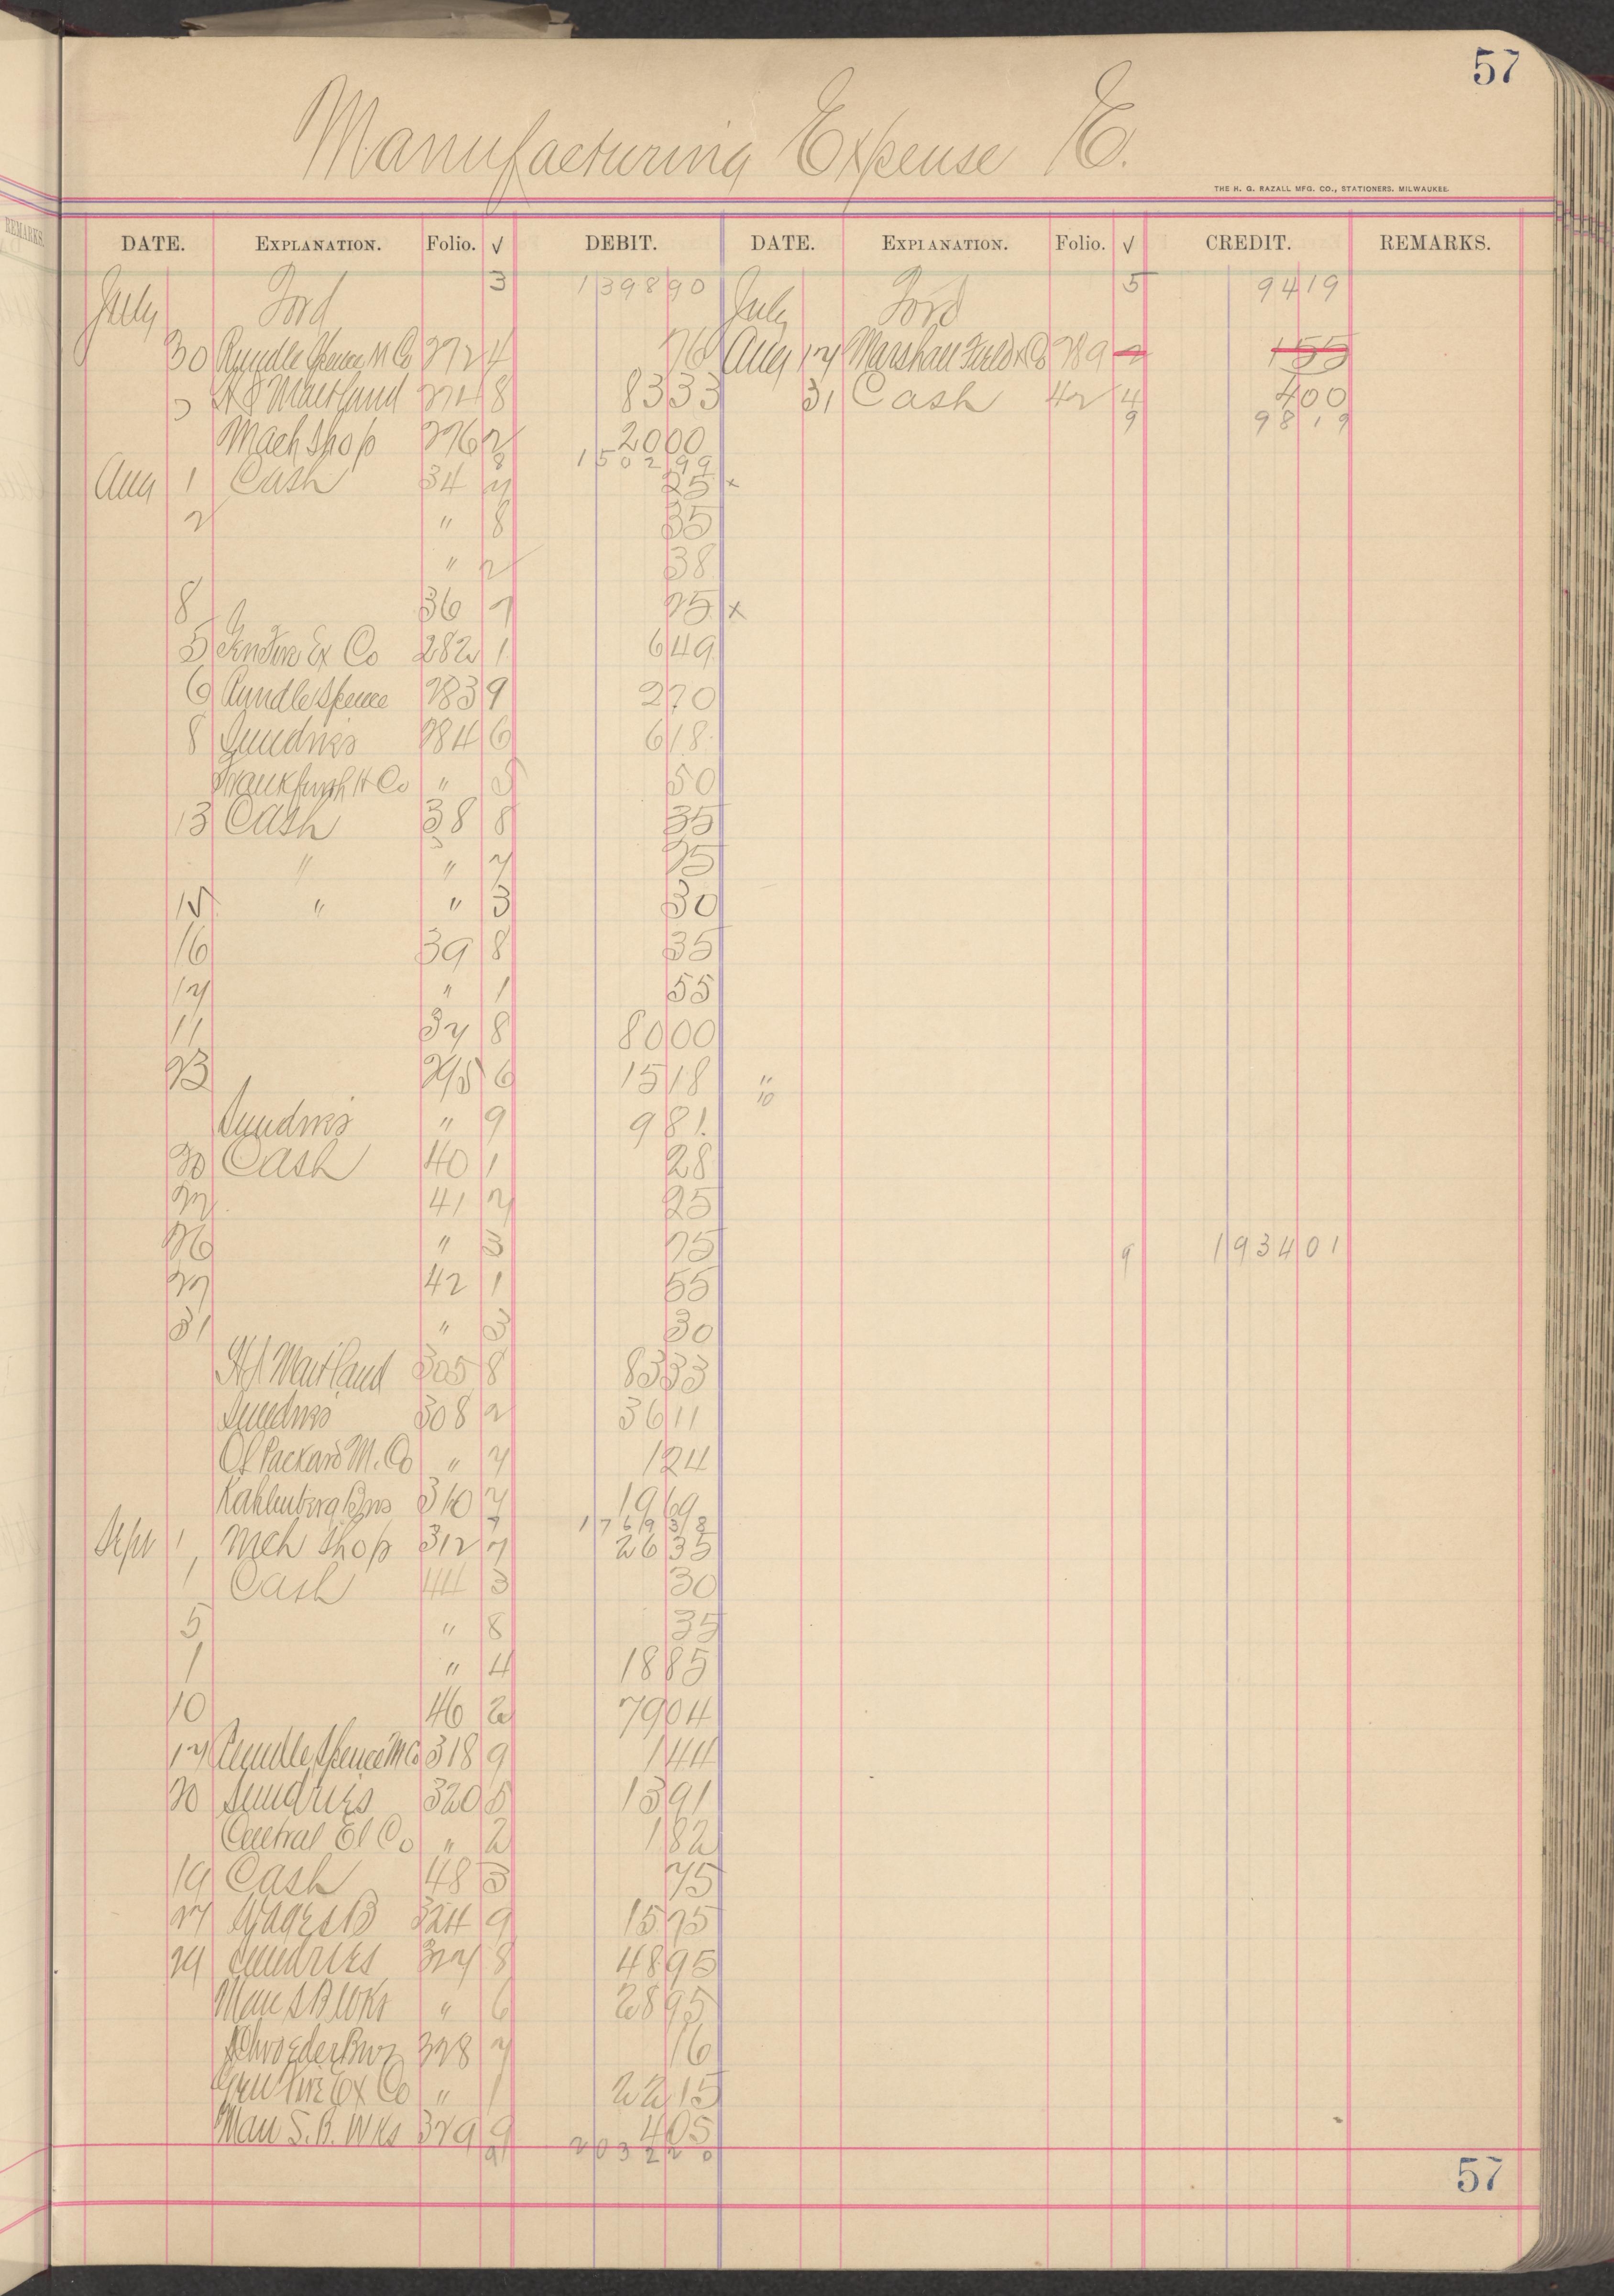 57
Manufacturing Expense E.
THE H. G. RAZALL MFG. CO., STATIONERS, MILWAUKEE.
REMARKS.
DATE. EXPLANATION. Folio. √ DEBIT. DATE. EXPLANATION. Folio. √ CREDIT. REMARKS.
July Ford 3 1398 90 July Ford 5 94 19
30 Rundle Spence M Co 272 4 76 Aug 17 Marshall Field & Co 289 2 1 55
H S Maitland 274 8 83 33 31 Cash 42 4 4 00
9 98 19
Mach Shop 276 2 20 00
8 1502 99
Aug 1 Cash 34 7 25 x
2 " 8 35
" 2 38
8 36 7 25 x
5 Gen Fire Ex Co 282 1 6 49
6 Rundle Spence 283 9 2 70
8 Sundries 284 6 6 18
Frankfurth H Co " 5 50
13 Cash 38 8 35
" " 7 25
15 " " 3 30
16 39 8 35
17 " 1 55
11 37 8 80 00
23 295 6 15 18 "
10
Sundries " 9 9 81
20 Cash 40 1 28
22 41 7 25
26 " 3 75 9 1934 01
27 42 1 55
31 " 3 30
H S Maitland 305 8 83 33
Sundries 308 2 36 11
Packard M. Co " 7 1 24
Kahlenberg Bros 310 7 19 69
7 1769 38
Sept 1 Mch Shop 312 7 26 35
1 Cash 44 3 30
5 " 8 35
1 " 4 18 85
10 46 2 79 04
17 Rundle Spence M Co 318 9 1 44
20 Sundries 320 5 13 91
Central El Co " 2 1 82
19 Cash 48 3 75
27 Wages B 324 9 15 75
29 Sundries 327 8 48 95
Man S B Wks " 6 28 95
Schroeder Bros 328 7 16
Gen Fire Ex Co " 1 22 15
Man S. B. Wks 329 9 4 05
9 2032 20
57